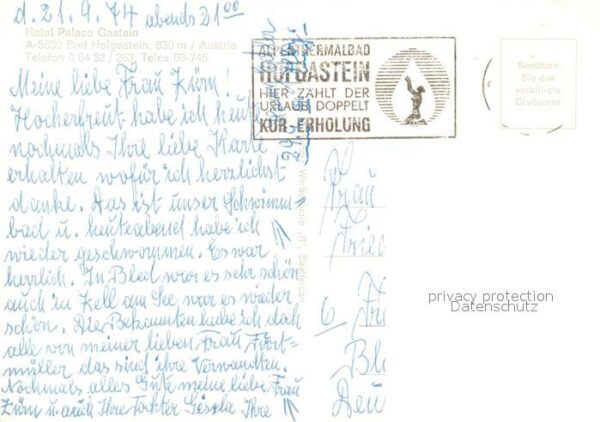 d. 21. 9. 74 abends 21 00
Hotel Palace Gastein
A-5630 Bad Hofgastein, 830 m / Austria
Telefon 0 64 32 / 263, Telex 05-745
Meine liebe Frau
Hocherfreut habe ich heut
nochmals Ihre liebe Karte
erhalten wofür ich herzlichst
danke. Das ist unser Schwimm-
bad u. heute abend habe ich
wieder geschwommen. Es war
herrlich. In Bled war es sehr schön
auch in Zell am See war es wieder
schön. Die Bekannten habe ich doch
alle von meiner lieben Frau Fürt-
müller das sind ihre Verwandten.
Nochmals alles Gute meine liebe Frau
u. auch Ihre Tochter Gisela Ihre
ALPENTHERMALBAD
HOFGASTEIN
HIER ZÄHLT DER
URLAUB DOPPELT
KUR - ERHOLUNG
Benützen
Sie das
verbilligte
Grußporto
Frau
Fried
6
Deu
privacy protection
Datenschutz